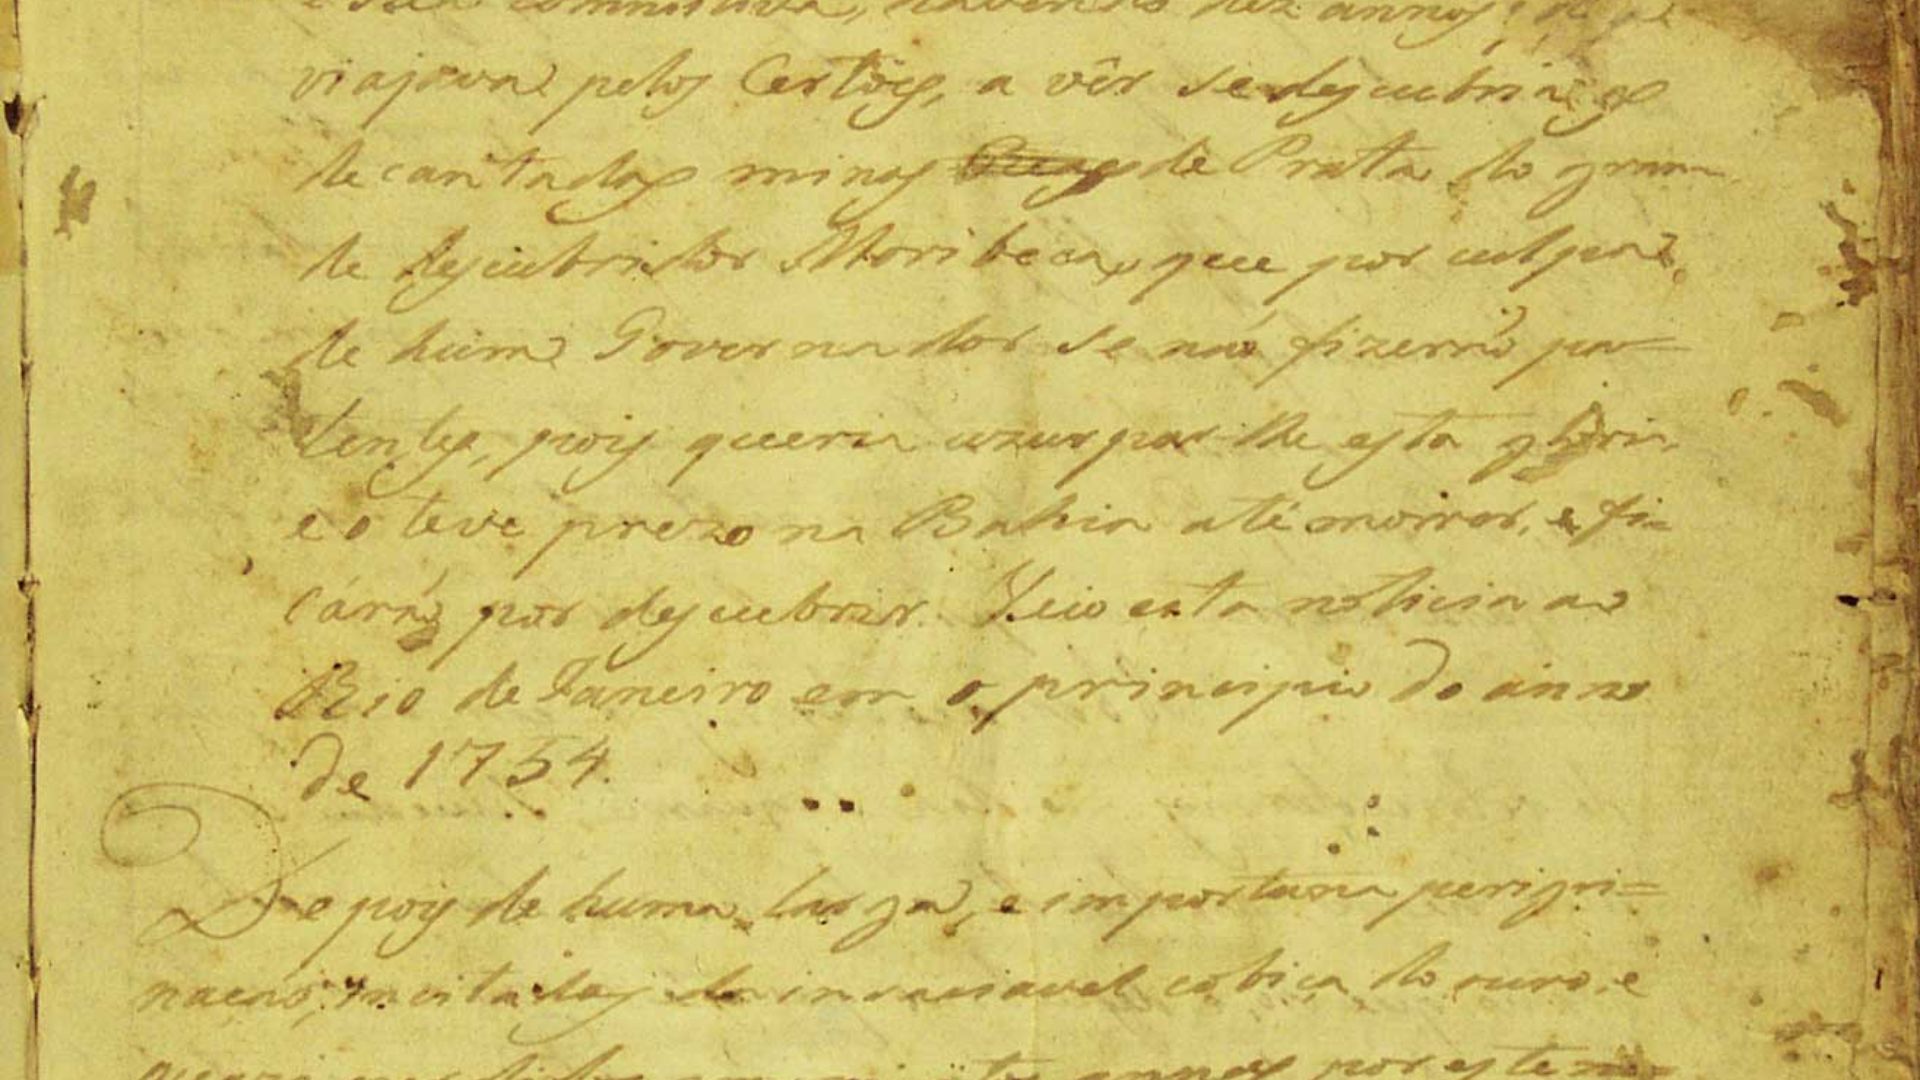 e sua committiva, havendo dez annos, que
viajava pelos Certoẽs, a vêr se descubria as
decantadas minas de Prata do gran
de descubridor Moribeca, que por culpa
de hum Governador se naõ fizeraõ pa=
tentes, pois queria uzurpar lhe esta gloria
e o teve prezo na Bahia até morrer, e fi=
cáraõ por descubrir. Veio esta noticia ao
Rio de Janeiro em o principio do anno
de 1754.
Depois de huma larga, e importuna perigri=
naçaõ, incitados da insaciavel cobiça do ouro, e
quazi perdidos em muitos annos por este